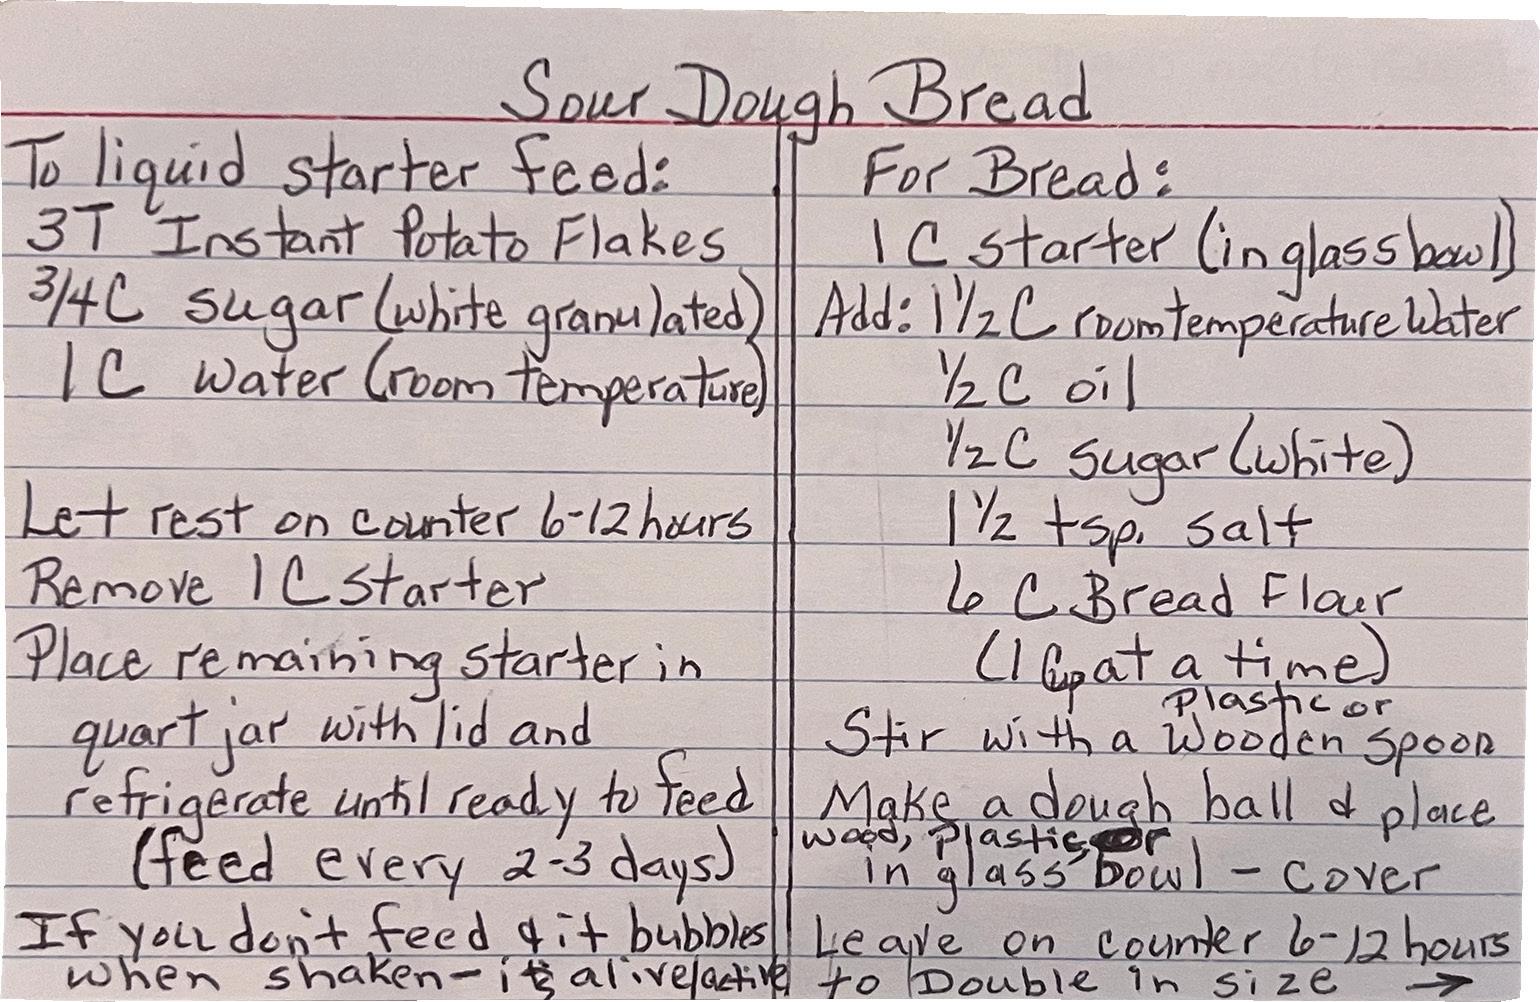 Sour Dough Bread
To liquid starter feed:
3T Instant Potato Flakes
3/4C sugar (white granulated)
1C water (room temperature)
Let rest on counter 6-12 hours
Remove 1C starter
Place remaining starter in
quart jar with lid and
refrigerate until ready to feed
(feed every 2-3 days)
If you don't feed & it bubbles
when shaken - it's alive/active
For Bread:
1C starter (in glass bowl)
Add: 1 1/2 C room temperature Water
1/2 C oil
1/2 C sugar (white)
1 1/2 tsp. salt
6 C Bread Flour
(1 Cup at a time)
Plastic or
Stir with a Wooden spoon
Make a dough ball & place
wood, plastic, or
in glass bowl - cover
Leave on counter 6-12 hours
to Double in size →